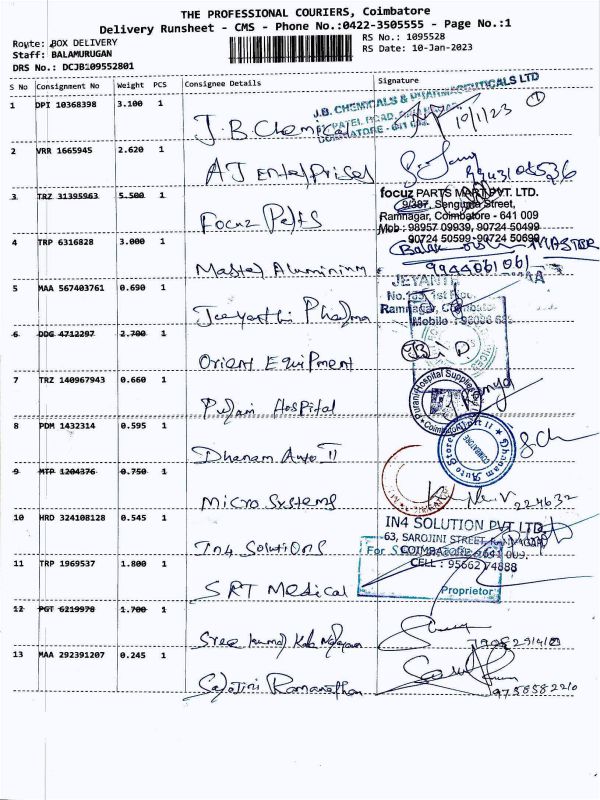 THE PROFESSIONAL COURIERS, Coimbatore
Delivery Runsheet - CMS - Phone No.:0422-3505555 - Page No.:1
Route: BOX DELIVERY
Staff: BALAMURUGAN
DRS No.: DCJB109552801
RS No.: 1095528
RS Date: 10-Jan-2023
S No Consignment No Weight PCS Consignee Details Signature
1 DPI 10368398 3.100 1 J.B. Chemical
J.B. CHEMICALS & PHARMACEUTICALS LTD
PATEL ROAD,
COIMBATORE - 641
10/1/23 1
2 VRR 1665945 2.620 1 AJ Enterprises
3 TRZ 31395963 5.500 1 Focuz Parts
focuz PARTS MART PVT. LTD.
9/387, Sengupta Street,
Ramnagar, Coimbatore - 641 009
Mob : 98957 09939, 90724 50499
90724 50599, 90724 50699
4 TRP 6316828 3.000 1 Master Aluminium
MASTER
9944061061
5 MAA 567403761 0.690 1 Jeeyanthi Pharma
JEYANTHI
1st Floor
Ramnagar, Coimbatore
Mobile : 98086
6 DDG 4712297 2.700 1 Orient Equipment
7 TRZ 140967943 0.660 1 Purani Hospital
Purani Hospital Supplies
Coimbatore
Ramya
8 PDM 1432314 0.595 1 Dhanam Auto II
Dhanam Auto Store
COIMBATORE
9 MTP 1204376 0.750 1 Micro Systems
224632
10 HRD 324108128 0.545 1 In4 Solutions
IN4 SOLUTION PVT LTD
63, SAROJINI STREET, RAMNAGAR
COIMBATORE - 641 009.
CELL : 95662 74888
11 TRP 1969537 1.800 1 SRT Medical
For
Proprietor
12 PGT 6219978 1.700 1 Sree Kumar
13 MAA 292391207 0.245 1 Sarojini Ramanathan
9758582210